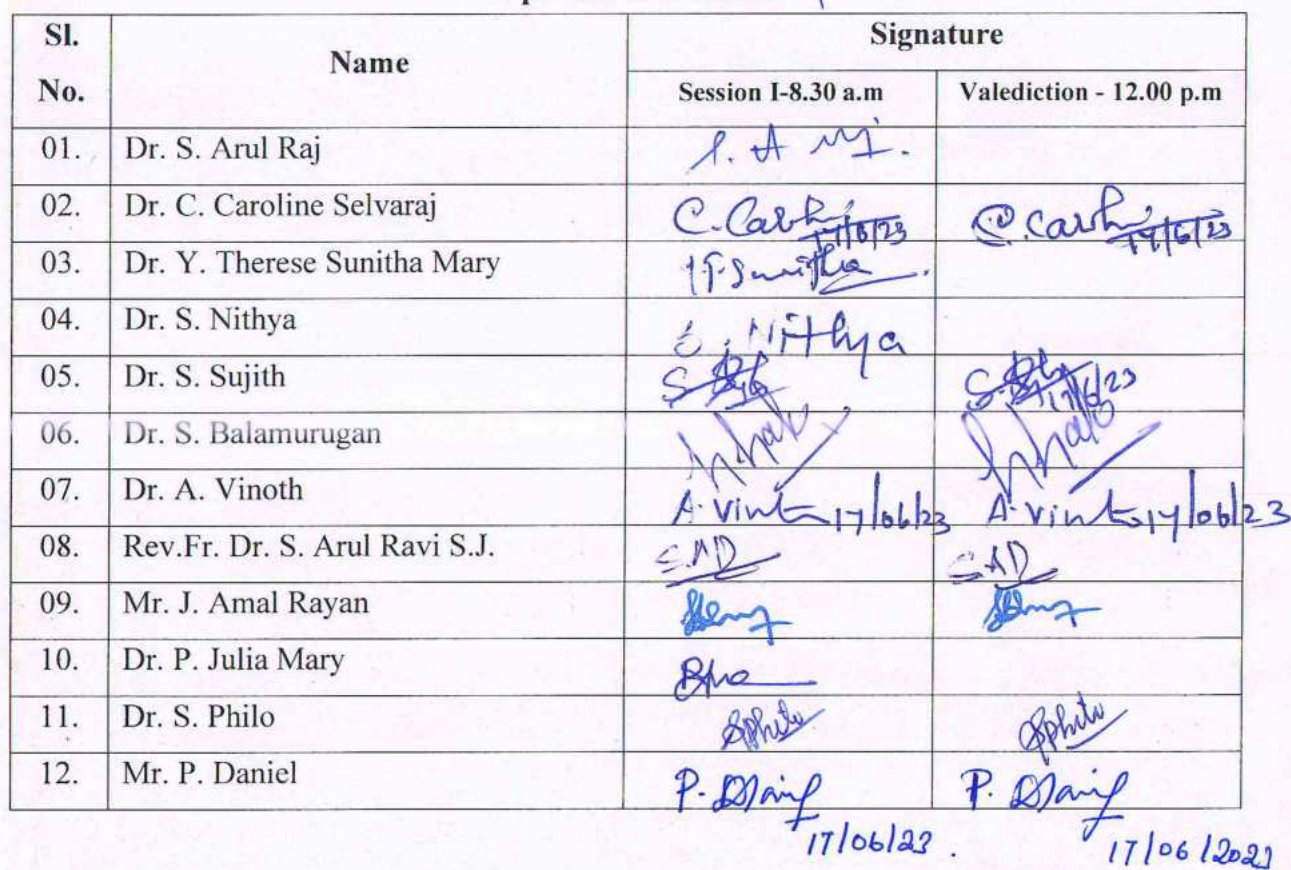 Sl. No. Name Signature
Session I-8.30 a.m Valediction - 12.00 p.m
01. Dr. S. Arul Raj
02. Dr. C. Caroline Selvaraj C. 17/6/23 C. 17/6/23
03. Dr. Y. Therese Sunitha Mary Sunitha
04. Dr. S. Nithya S. Nithya
05. Dr. S. Sujith S. S. 17/6/23
06. Dr. S. Balamurugan
07. Dr. A. Vinoth A. 17/06/23 A. 17/06/23
08. Rev.Fr. Dr. S. Arul Ravi S.J.
09. Mr. J. Amal Rayan
10. Dr. P. Julia Mary
11. Dr. S. Philo Sphilo Sphilo
12. Mr. P. Daniel P. P.
17/06/23. 17/06/2023